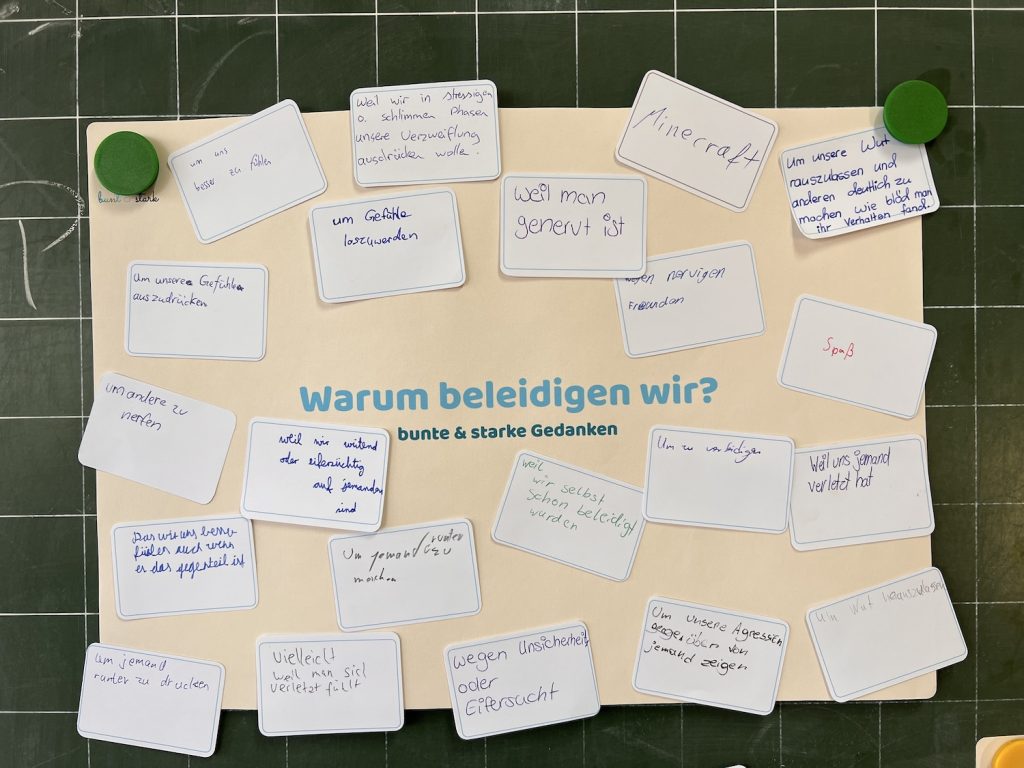 bunt & stark
um uns
besser zu fühlen
Weil wir in stressigen
o. schlimmen Phasen
unsere Verzweiflung
ausdrücken wolle.
Minecraft
um unsere Wut
rauszulassen und
anderen deutlich zu
machen wie blöd man
ihr Verhalten fand.
um Gefühle
loszuwerden
weil man
genervt ist
um unsere Gefühle
auszudrücken
wegen nervigen
Freunden
Spaß
um andere zu
nerfen
Warum beleidigen wir?
bunte & starke Gedanken
weil wir wütend
oder eifersüchtig
auf jemanden
sind
weil
wir selbst
schon beleidigt
wurden
Um zu verteidigen
Weil uns jemand
verletzt hat
Das wir uns besser
fühlen auch wenn
er das gegenteil ist
Um jemand runter
zu
machen
um jemand
runter zu drucken
Vielleicht
weil man sich
verletzt fühlt
wegen Unsicherheit
oder
Eifersucht
Um unsere Agression
gegenüber von
jemand zeigen
Um Wut herauszulassen